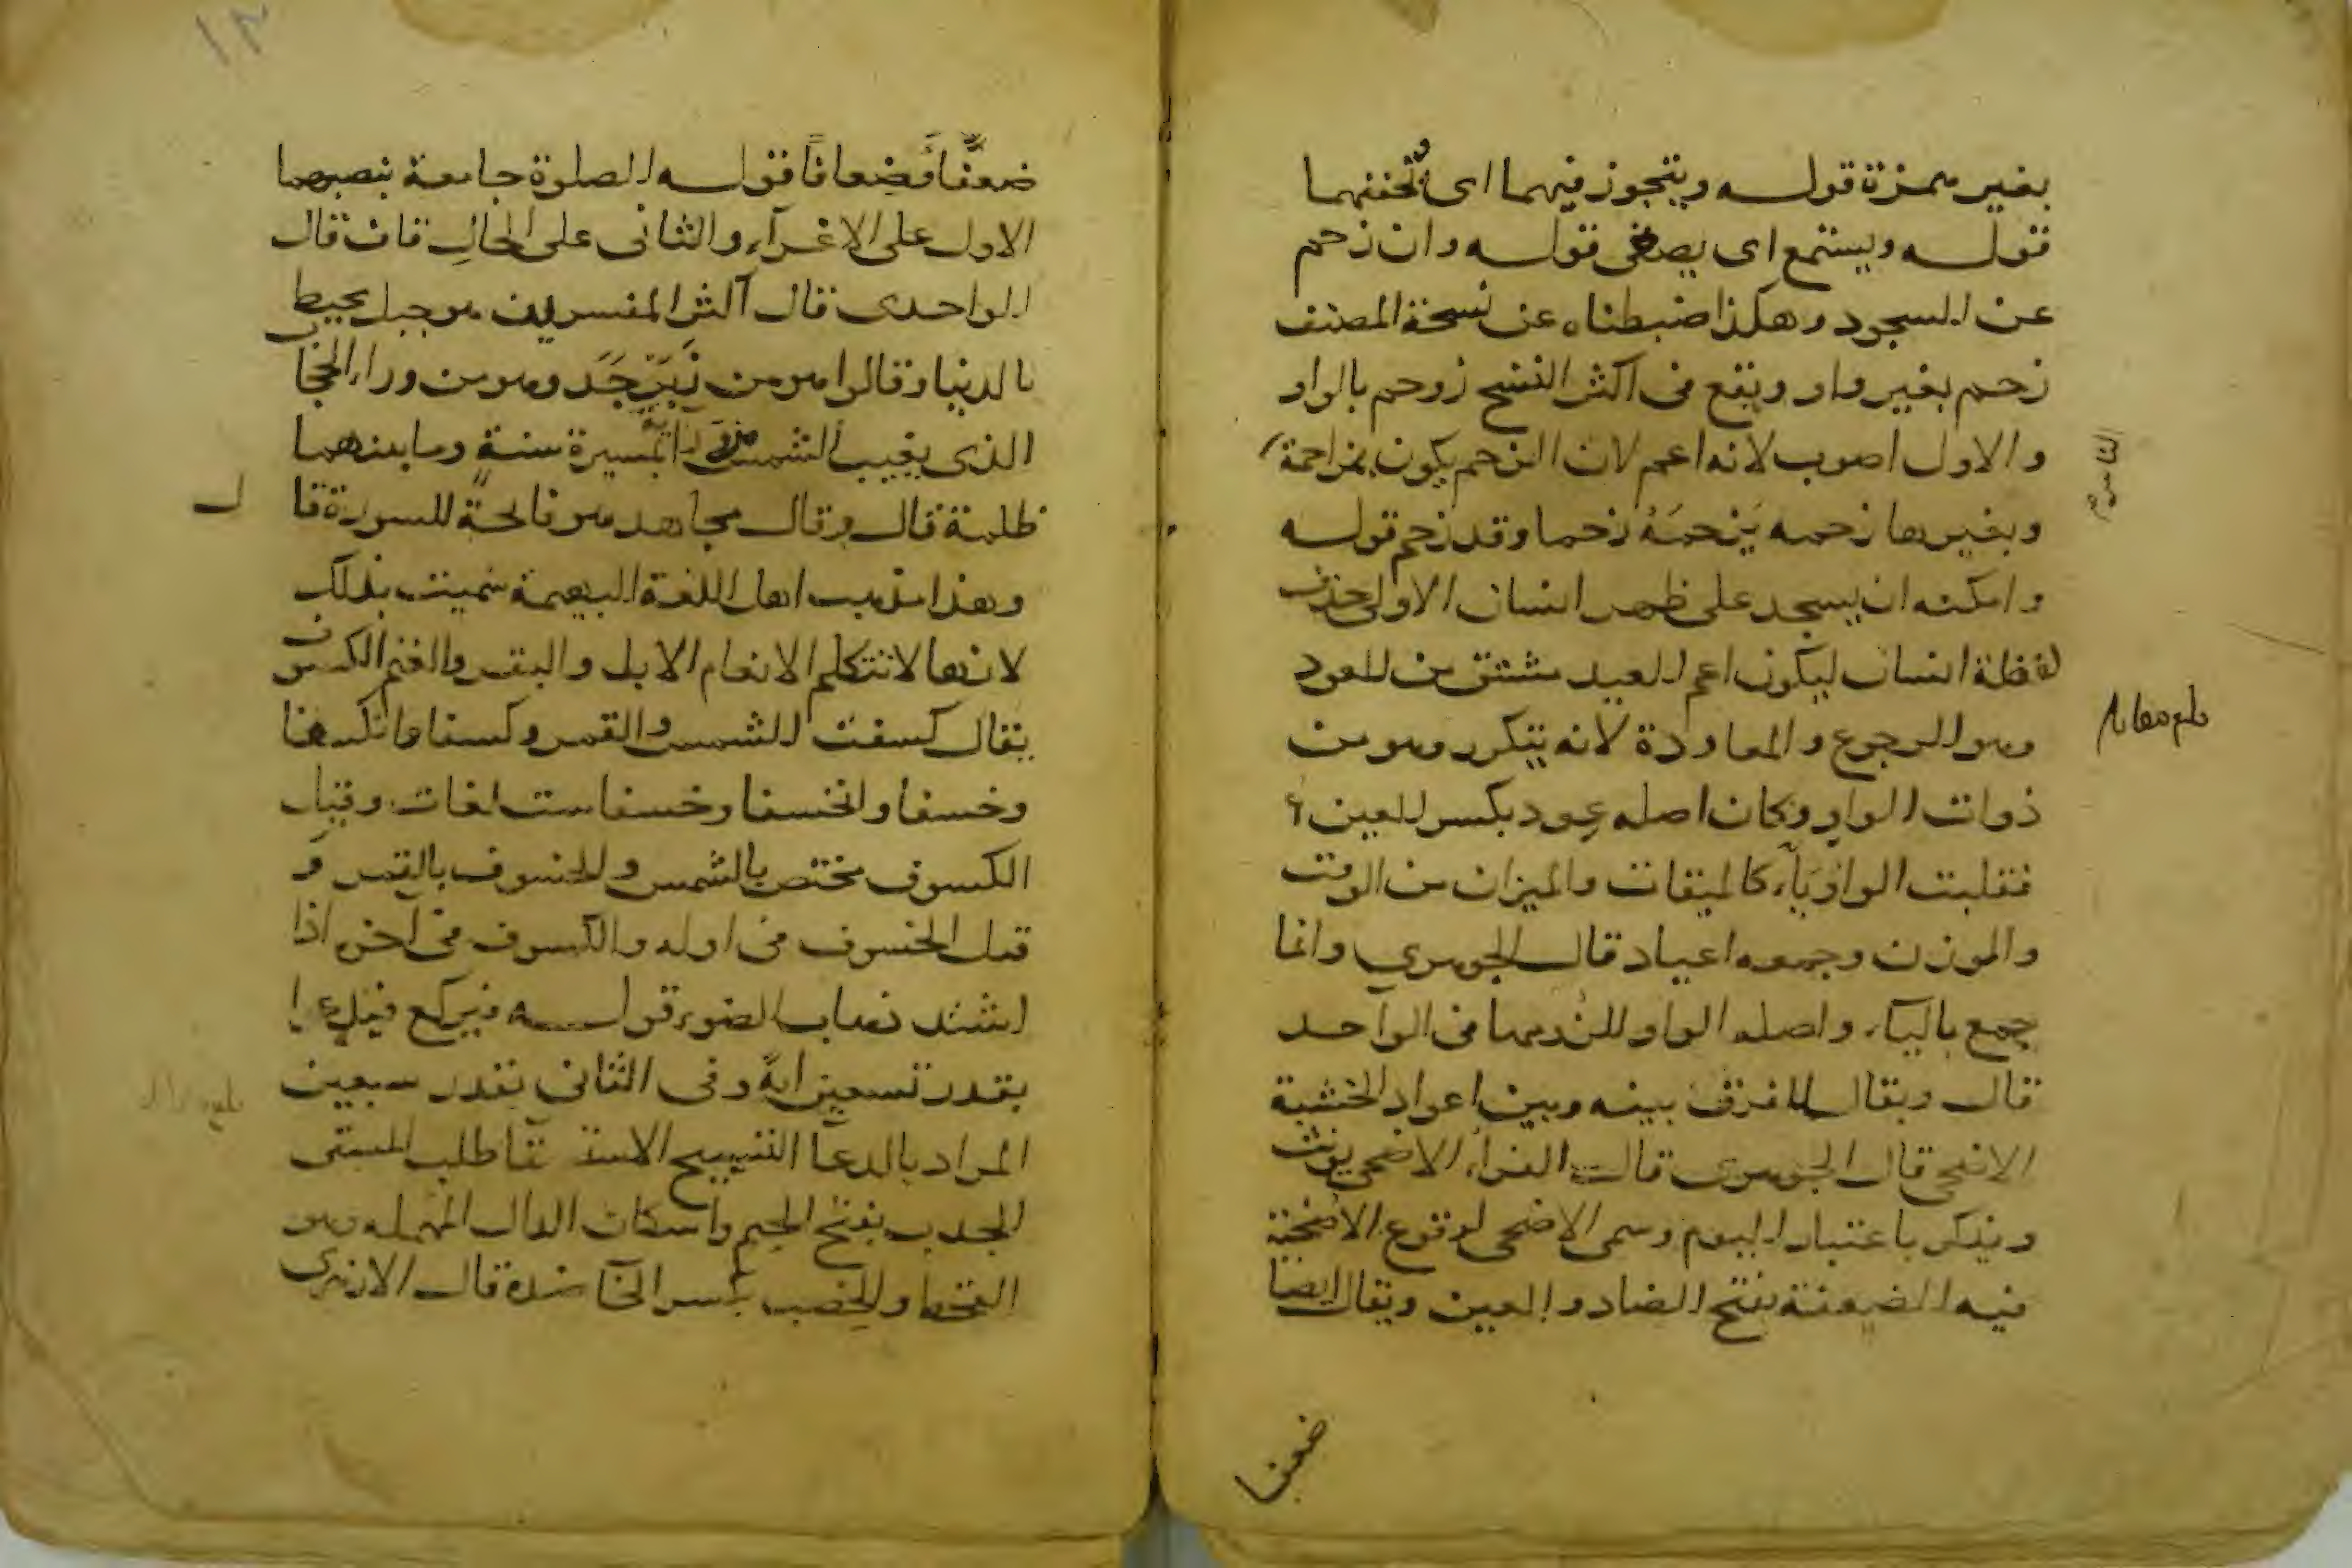 بغير همزة قوله ويتجوز فيهما اى يخففهما
قوله ويستمع اى يصغى قوله وان زحم
عن السجود وهكذا ضبطناه عن نسخة المصنف
زحم بغير واو ويقع فى اكثر النسخ زوحم بالواو
والاول اصوب لانه اعم لان الزحم يكون بمزاحمة
وبغيرها زحمه يَزحمَهُ زحما وقد زحم قوله
وامكنه ان يسجد على ظهر انسان الاولى حذف
لفظة انسان ليكون اعم العيد مشتق من العود
وهو الرجوع والمعاودة لانه يتكرر وهو من
ذوات الواو وكان اصله عِود بكسر العين
فقلبت الواو ياء كالميقات والميزان من الوقت
والموزن وجمعه اعياد قال الجوهري وانما
جمع بالياء واصله الواو للزومها فى الواحد
قال ويقال للفرق بينه وبين اعواد الخشبة
الاضحى قال الجوهرى قال الفراء الاضحى يونث
ويذكر باعتبار اليوم وسمى الاضحى لوقوع الاضحية
فيه الضعفة بفتح الضاد والعين ويقال ايضا
ضعفا
ضعفًا وضعافًا قوله الصلوة جامعة بنصبهما
الاول على الاغرآء والثانى على الحالِ قاف قال
الواحدى قال اكثر المفسرين هو جبل محيط
بالدنيا وقالوا هو من زَبَرْجَد وهو من وراء الحجاب
الذى يغيب الشمس من ورائه بمسيرة سنةٍ وما بينهما
ظلمة قال وقال مجاهد هو فاتحةٌ للسورة قال
وهذا مذهب اهل اللغة البهيمة سميت بذلك
لانها لا تتكلم الانعام الابل والبقر والغنم الكسوف
يقال كسفت الشمس والقمر وكسفا وانكسفا
وخسفا وانخسفا وخسفا ست لغات وقيل
الكسوف مختص بالشمس والخسوف بالقمر و
قيل الخسوف فى اوله والكسوف فى آخره اذا
اشتد ذهاب الضوء قوله فيركع فيدعوا
بقدر تسعين اية وفى الثانى بقدر سبعين
المراد بالدعا التسبيح الاستسقا طلب السقى
الجدب بفتح الجيم واسكان الدال المهمله وهو
القحط والخصب بكسر الخا ضده قال الازهرى